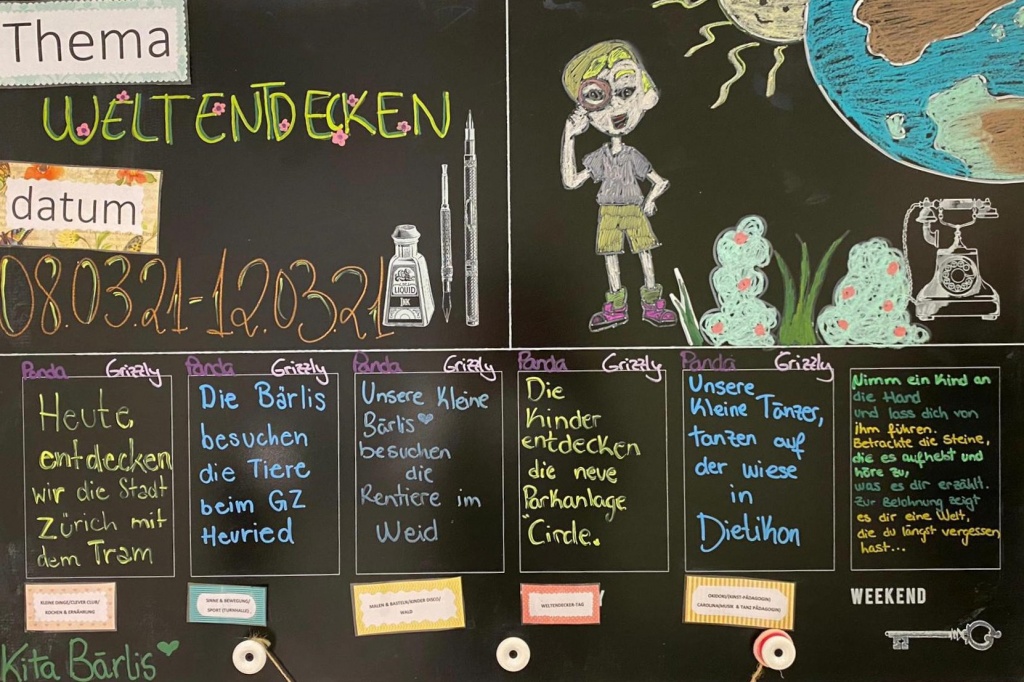 Thema
WELTENTDECKEN
datum
08.03.21-12.03.21
LIQUID
INK
Panda Grizzly
Heute,
entdecken
wir die Stadt
Zürich mit
dem Tram
Panda Grizzly
Die Bärlis
besuchen
die Tiere
beim GZ
Heuried
Panda Grizzly
Unsere Kleine
Bärlis
besuchen
die
Rentiere im
Weid
Panda Grizzly
Die
Kinder
entdecken
die neue
Parkanlage
Circle.
Panda Grizzly
Unsere
Kleine Tänzer,
tanzen auf
der wiese
in
Dietikon
Nimm ein Kind an
die Hand
und lass dich von
ihm führen.
Betrachte die Steine,
die es aufhebt und
höre zu,
was es dir erzählt.
Zur Belohnung zeigt
es dir eine Welt,
die du längst vergessen
hast...
KLEINE DINGE/CLEVER CLUB/
KOCHEN & ERNÄHRUNG
SINNE & BEWEGUNG/
SPORT (TURNHALLE)
MALEN & BASTELN/KINDER DISCO/
WALD
WELTENTDECKER-TAG
OKIDOKI/(KUNST-PÄDAGOGIN)
CAROLINA(MUSIK & TANZ PÄDAGOGIN)
WEEKEND
Kita Bärlis